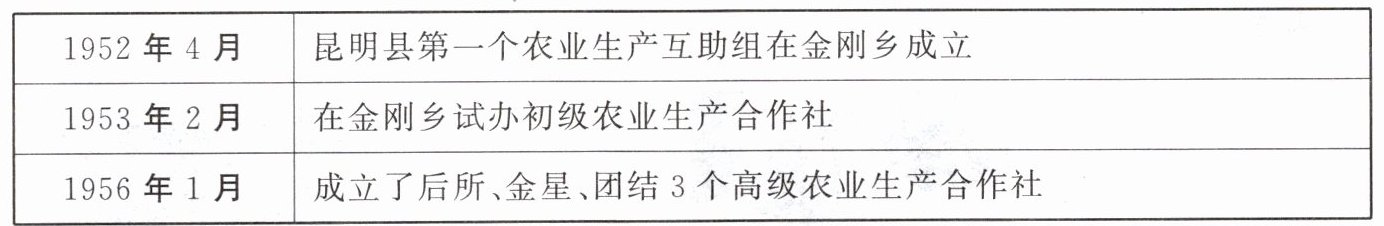 1952 年 4 月 昆明县第一个农业生产互助组在金刚乡成立
1953 年 2 月 在金刚乡试办初级农业生产合作社
1956 年 1 月 成立了后所、金星、团结 3 个高级农业生产合作社